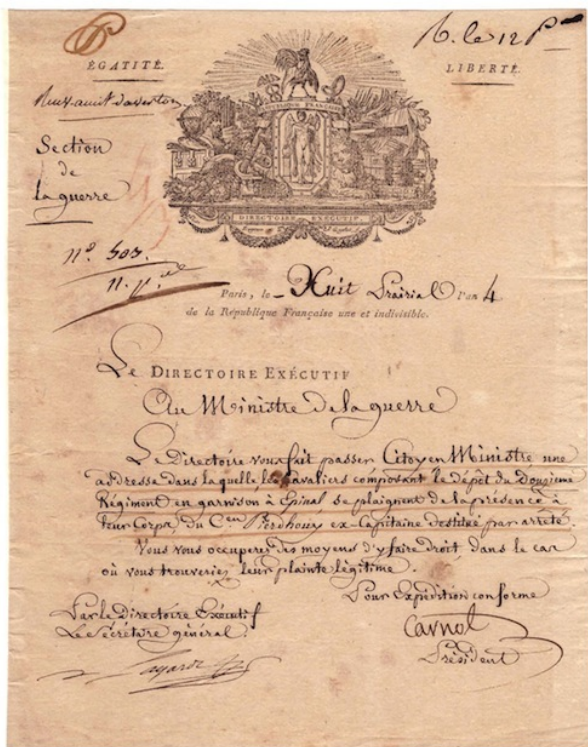 R. le 12 P
ÉGALITÉ.
LIBERTÉ.
Section
de
la guerre
n.º 503.
RÉPUBLIQUE FRANÇAISE
DIRECTOIRE EXÉCUTIF.
Paris, le Huit Prairial l'an 4
de la République Française une et indivisible.
Le DIRECTOIRE EXÉCUTIF
Au Ministre de la guerre
Le Directoire vous fait passer Citoyen Ministre une
addresse dans laquelle les Cavaliers composant le dépôt du Douzieme
Régiment en garnison à Epinal, se plaignent de la présence à
leur Corps, du C.en ex-Capitaine destitué par arrêté.
Vous vous occuperez des moyens d'y faire droit dans le cas
où vous trouveriez leur plainte légitime.
Pour Expédition conforme
Par le Directoire Exécutif
Le Secrétaire général.
Carnot
Président
Lagarde